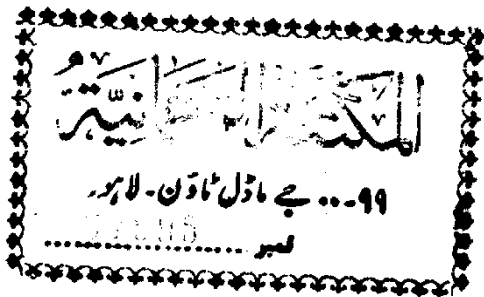 المكتبة الرحمانية
۹۹-.. جے ماڈل ٹاؤن - لاہور
نمبر ....................